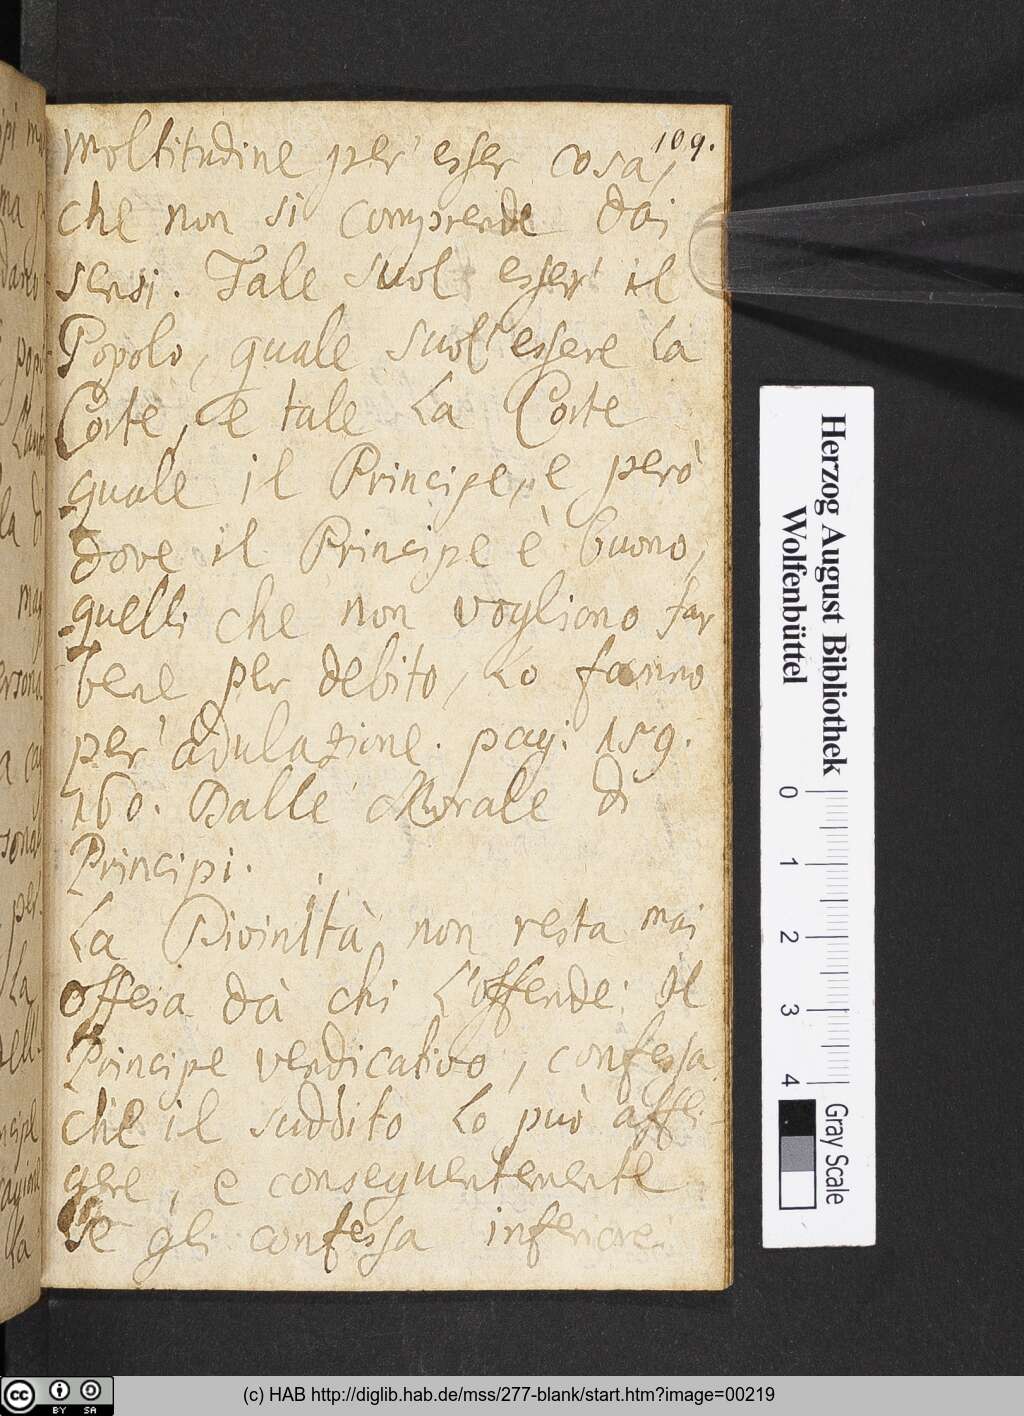 109.
moltitudine per esser cosa,
che non si comprende dai
sensi. Tale suol esser il
Popolo, quale suol' essere la
Corte, e tale la Corte
quale il Principe, e però
dove il Principe è buono,
quelli che non vogliono far
bene per debito, lo fanno
per adulazione. pag: 159.
160. Dalle Morale di
Principi.
La Divinità non resta mai
offesa dà chi l'offende: Il
Principe vendicativo, confessa
che il suddito lo può affli-
gere, e conseguentemente
se gli confessa inferiore.
Herzog August Bibliothek
Wolfenbüttel
0 1 2 3 4
Gray Scale
cc BY SA
(c) HAB http://diglib.hab.de/mss/277-blank/start.htm?image=00219